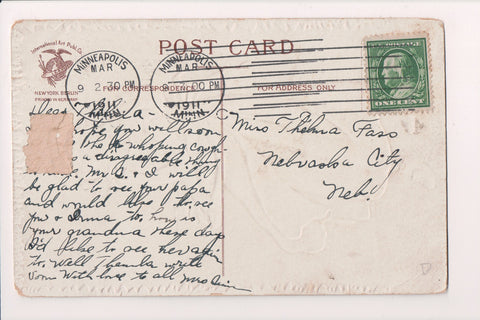 International Art Publ. Co.
NEW YORK BERLIN
PRINTED IN GERMANY
POST CARD
MINNEAPOLIS
MAR
9
2-PM
1911
MINN
MINNEAPOLIS
MAR
9
00 PM
1911
MINN
FOR CORRESPONDENCE
FOR ADDRESS ONLY
U.S. POSTAGE
ONE CENT
Dear Thelma -
hope you will soon
the whoping cough
a disagreeable thing
Mr G. & I will
be glad to see your papa
and would like to see
you & to. how is
your grandma these days
I'd like to see her again
to. Well Thelma write
With love to all Mrs
Miss Thelma Faso
Nebraska City
Neb.
D